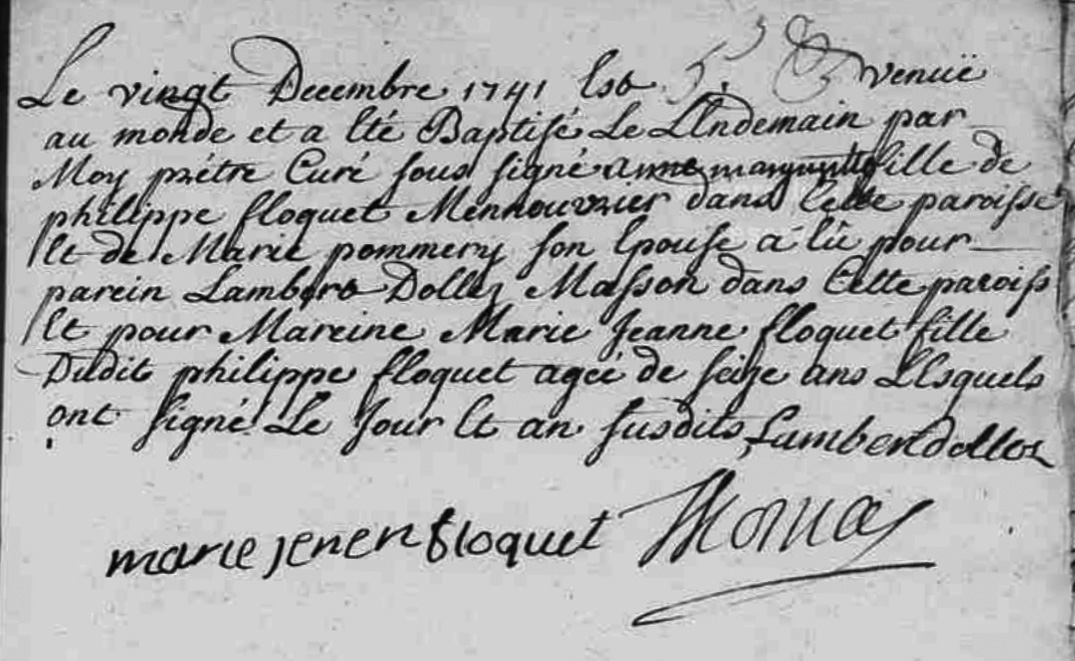 Le vingt Decembre 1741 Est venuë
au monde et a Eté Baptisé Le LEndemain par
Moy prétre Curé sous signé anne margueritte fille de
philippe floquet Mennouvrier dans Cette paroisse
Et de Marie pommery son Epouse a Eü pour
parein Lambert Dollez Masson dans Cette paroiss
Et pour Mareine Marie Jeanne floquet fille
Dudit philippe floquet agée de seize ans LEsquels
ont signé Le Jour Et an susdits Lambert dollez
marie jenen floquet Thomas